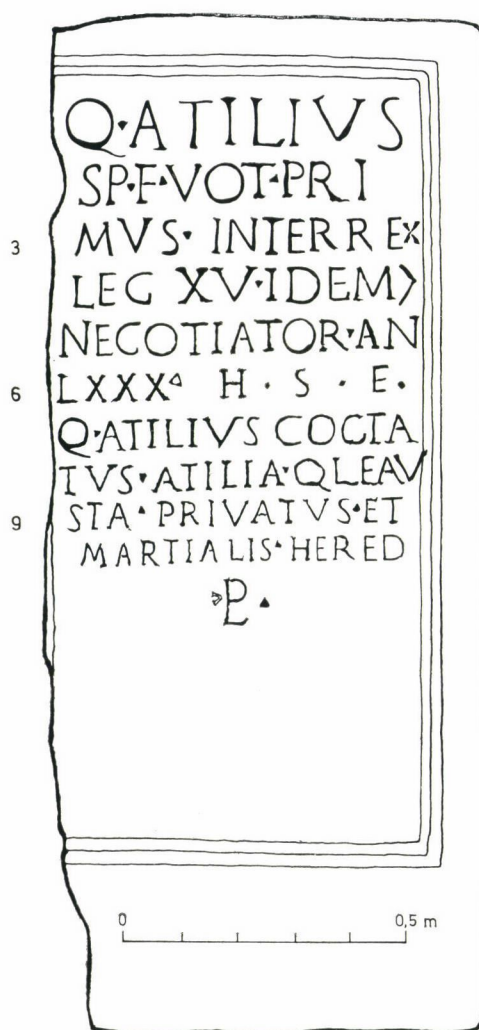 Q·ATILIVS
SP·F·VOT·PRI
3 MVS· INTERREX
LEG XV·IDEM〉
NEGOTIATOR·AN
6 LXXX· H · S · E ·
Q·ATILIVS COGTA
TVS·ATILIA·QLEAV
9 STA·PRIVATVS·ET
MARTIALIS·HERED
PL ·
0 0,5 m